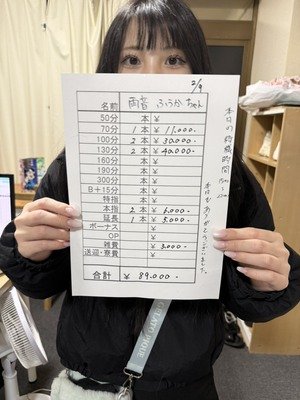 2/9
名前 雨音 ふうか ちゃん
50分 本 ¥
70分 1 本 ¥ 11,000.-
100分 2 本 ¥ 30,000.-
130分 2 本 ¥ 40,000.-
160分 本 ¥
190分 本 ¥
300分 本 ¥
B+15分 本 ¥
特指 本 ¥
本指 2 本 ¥ 6,000.-
延長 1 本 ¥ 5,000.-
ボーナス ¥
OP ¥
雑費 ¥ 3,000.-
送迎・寮費 ¥
合計 ¥ 89,000.-
本日の待機時間
本日もありがとうございました。